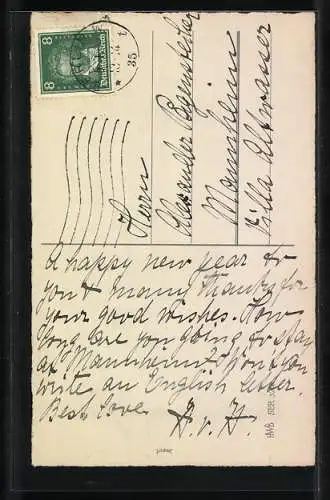 8 8
Deutsches Reich
35
Herrn
Alexander
Mannheim
Villa
A happy new year to
you & many thanks for
your good wishes. How
long are you going to stay
at Mannheim? Won't you
write an English letter.
Best love
H. v. H.